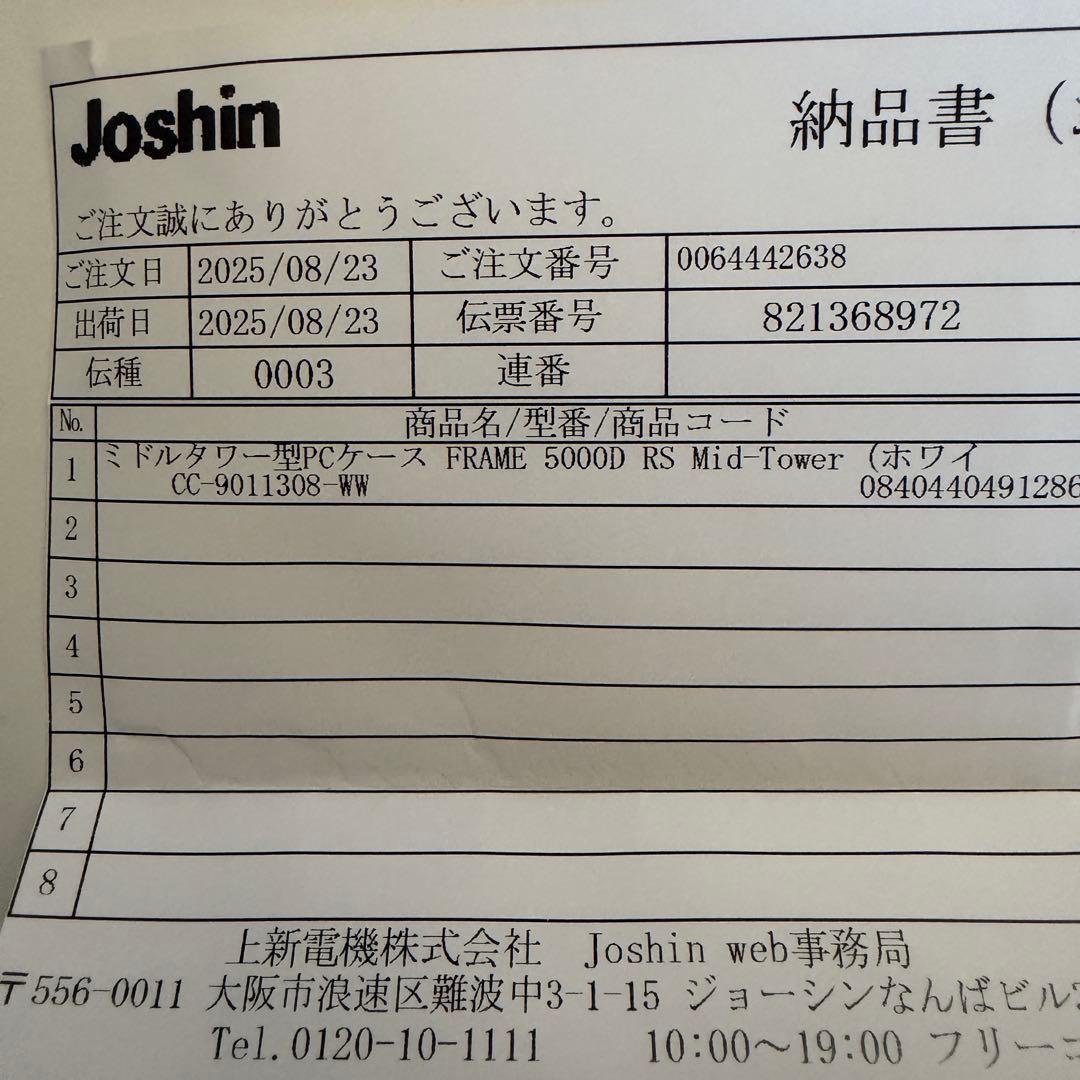 Joshin
納品書（
ご注文誠にありがとうございます。
ご注文日 2025/08/23 ご注文番号 0064442638
出荷日 2025/08/23 伝票番号 821368972
伝種 0003 連番
No. 商品名/型番/商品コード
1 ミドルタワー型PCケース FRAME 5000D RS Mid-Tower (ホワイ
CC-9011308-WW 0840440491286
2
3
4
5
6
7
8
上新電機株式会社 Joshin web事務局
〒556-0011 大阪市浪速区難波中3-1-15 ジョーシンなんばビル
Tel.0120-10-1111 10:00～19:00 フリーコ